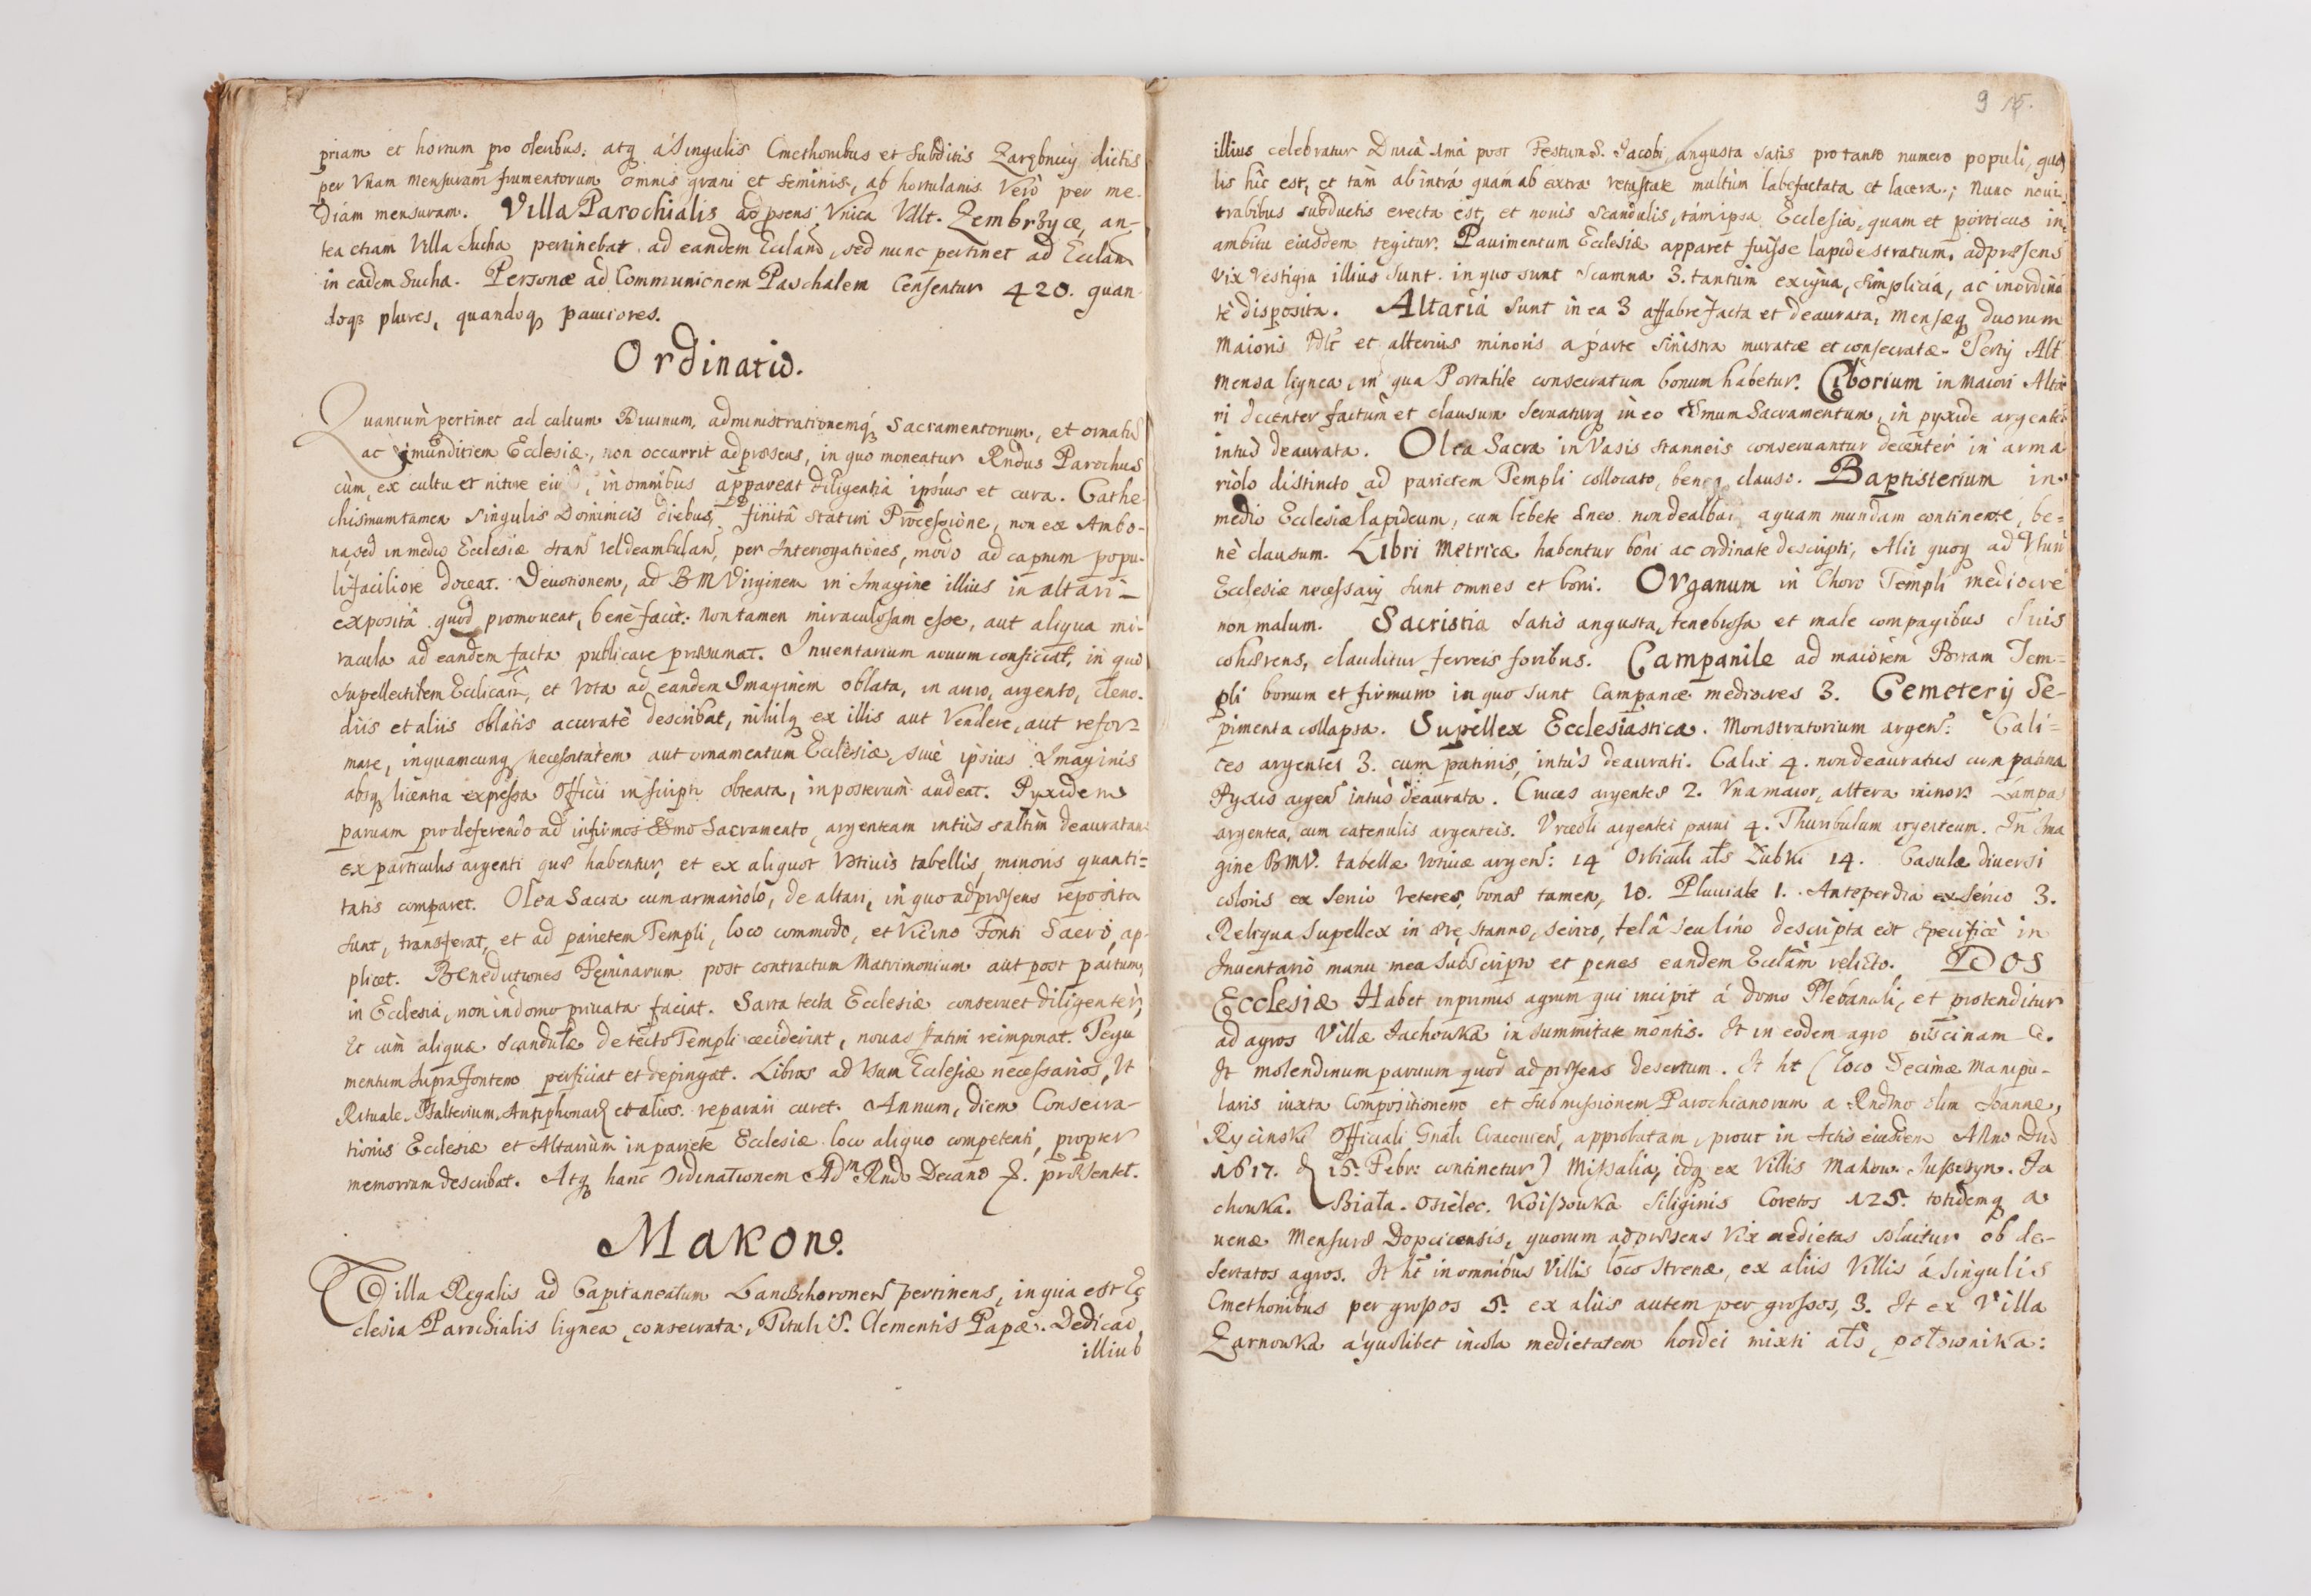 priam et hortum pro oleribus: atq; à singulis Cmethonibus et Subditis Zarębnicÿ dictis
per Vnam mensuram frumentorum omnis grani et seminis, ab hortulanis Verò per me-
diam mensuram. Villa Parochialis ad psens Vnica Vdlt. Zembrzyce, an-
tea etiam Villa Sucha pertinebat ad eandem Ecclam, sed nunc pertinet ad Ecclam
in eadem Sucha. Personæ ad Communionem Paschalem Censentur 420. quan
doq; plures, quandoq; pauciores.
Ordinatio.
Quantum pertinet ad cultum Diuinum, administrationemq; Sacramentorum, et ornatū
ac munditiem Ecclesiæ, non occurrit ad præsens, in quo moneatur Rndus Parochus
cùm, ex cultu et nitore in omnibus appareat diligentia ipsius et cura. Cathe-
chismum tamen singulis Dominicis diebus, finitâ statim Processione, non ex Ambo-
na, sed in medio Ecclesiæ stans vel deambulans, per Interrogationes, modo ad captum popu-
li faciliore doceat. Deuotionem, ad BM Virginem in Imagine illius in altari
exposità quòd promoueat, benè facit: non tamen miraculosam esse, aut aliqua mi-
racula ad eandem facta publicare præsumat. Inuentarium nouum conficiat, in quo
supellectilem Ecclicam, et Vota ad eandem Imaginem oblata, in auro, argento, cleno-
diis et aliis oblatis acuratè describat, nihilq; ex illis aut Vendere, aut refor-
mare, in quamcunq; necessitatem aut ornamentum Ecclesiæ, siuè ipsius Imaginis
absq; licentia expressa Officii in scripto obtenta, in posterum audeat. Pyxidem
paruam pro deferendo ad infirmos SSmo Sacramento, argenteam intùs saltim deauratam
ex particulis argenti quæ habentur, et ex aliquot Votiuis tabellis, minoris quanti-
tatis comparet. Olea Sacra cum armariolo, de altari, in quo ad præsens reposita
sunt, transferat, et ad parietem Templi, loco commodo, et Vicino Fonti Sacro, ap-
plicet. Benedictiones Fęminarum post contractum Matrimonium aut post partum,
in Ecclesia, non in domo priuata faciat. Sarta tecta Ecclesiæ conseruet diligenter,
Et cùm aliquæ Scandulæ de tecto Templi ceciderint, nouas statim reimponat. Tegu
mentum supra fontem perficiat et depingat. Libros ad Vsum Ecclesiæ necessarios, Vt
Rituale, Psalterium, Antiphonar et alios reparari curet. Annum, diem Consecra-
tionis Ecclesiæ et Altarium in pariete Ecclesiæ loco aliquo competenti, propter
memoriam describat. Atq; hanc Ordinationem Adm Rndo Decano F. præsentet.
Makow.
Villa Regalis ad Capitaneatum Lanckhoronens pertinens, in qua est Ec
clesia Parochialis lignea, consecrata, Tituli S. Clementis Papæ. Dedicao
illius
9 15.
illius celebratur Dnicâ 1mâ post Festum S. Jacobi, angusta satis pro tanto numero populi, qua
lis hîc est, et tàm ab intrá quàm ab extra vetustate multùm labefactata et lacera; nunc noui
trabibus subductis erecta est, et nouis Scandulis, tàm ipsa Ecclesia, quam et porticus in
ambitu eiusdem tegitur. Pauimentum Ecclesiæ apparet fuisse lapide stratum, ad præsens
Vix Vestigia illius sunt. in quo sunt Scamna 3. tantùm exigua, simplicia, ac inordina
tè disposita. Altaria sunt in ea 3 affabrè facta et deaurata, mensæq; duorum
Maioris Vdlt et alterius minoris à parte sinistra muratæ et consecratæ. Tertij Alt
mensa lignea, in qua Portatile consecratum bonum habetur. Ciborium in Maiori Alta
ri decenter factum et clausum seruaturq; in eo SSmum Sacramentum, in pyxide argentea
intùs deaurata. Olea Sacra in Vasis Stanneis conseruantur decenter in arma
riolo distincto ad parietem Templi collocato, bene clauso. Baptisterium in
medio Ecclesiæ lapideum, cum lebete æneo non dealbato, aquam mundam continente, be-
nè clausum. Libri Metricæ habentur boni ac ordinate descripti, Alii quoq; ad Vsum
Ecclesiæ necessarij sunt omnes et boni. Organum in Choro Templi mediocre
non malum. Sacristia satis angusta, tenebrosa et male compagibus suis
cohærens, clauditur ferreis foribus. Campanile ad maiorem Portam Tem-
pli bonum et firmum in quo sunt Campanæ mediocres 3. Cemeterij Se-
pimenta collapsa. Supellex Ecclesiastica. Monstratorium argens: Cali-
ces argentei 3. cum patinis, intùs deaurati. Calix 4. non deauratus cum patina
Pyxis argens intùs deaurata. Cruces argenteæ 2. Vna maior, altera minor. Lampas
argentea, cum catenulis argenteis. Vrceoli argentei parui 4. Thuribulum argenteum. In Ima
gine BMV. tabellæ Votiuæ argens: 14 Orbiculi als Lubki 14. Casulæ diuersi
coloris ex Serico veteres, bonæ tamen, 10. Pluuiale 1. Antependia ex Serico 3.
Reliqua Supellex in ære, Stanno, serico, telâ seu lino descripta est specificè in
Inuentario manu mea subscripto et penes eandem Ecclam relicto. Dos
Ecclesiæ Habet inprimis agrum qui incipit á domo Plebanali, et protenditur
ad agros Villæ Jachowka in summitate montis. It in eodem agro piscinam &.
It molendinum paruum quod ad præsens desertum. It ht (loco Decimæ Manipu-
laris iuxta Compositionem et submissionem Parochianorum a Rndmo olim Joanne,
Rycinski Officiali Gnali Cracouien, approbatam, prout in Actis eiusdem Anno Dni
1617. d 15. Febr: continetur) Missalia, idq; ex Villis Makow. Juszczyn. Ja
chowka. Biała. Osielec. Koiszowka Siliginis Coretos 125. totidemq; a
uenæ Mensuræ Dopcicensis, quorum ad præsens Vix medietas soluitur ob de-
sertatos agros. It ht in omnibus Villis loco strenæ, ex aliis Villis á singulis
Cmethonibus per grossos 5. ex aliis autem per grossos, 3. It ex Villa
Zarnowka á quolibet incola medietatem hordei mixti als, połownika: